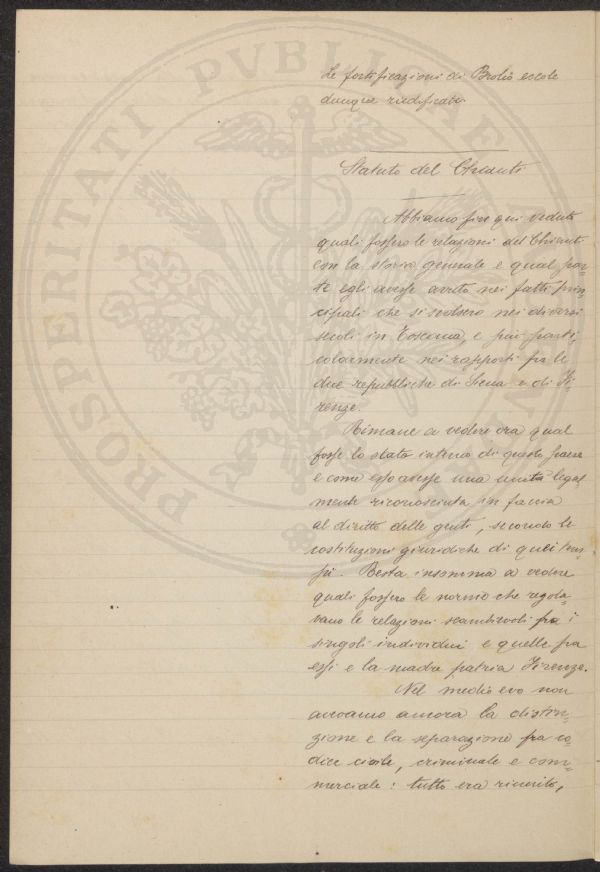 PROSPERITATI PVBLICAE
Le fortificazioni di Brolio eccole
dunque riedificate.
Statuto del Chianti
Abbiamo fin qui veduto
quali fossero le relazioni del Chianti
con la storia generale e qual par=
te egli avesse avuto nei fatti prin=
cipali che si svolsero nei diversi
secoli in Toscana, e più parti,
colarmente nei rapporti fra le
due repubbliche di Siena e di Fi=
renze.
Rimane a vedere ora qual
fosse lo stato interno di questo paese
e come esso avesse una unità legal
mente riconosciuta in faccia
al diritto delle genti, secondo le
costituzioni giuridiche di quei tem=
pi. Resta insomma a vedere
quali fossero le norme che regola=
vano le relazioni scambievoli fra i
singoli individui e quelle fra
essi e la madre patria Firenze.
Nel medio evo non
avevamo ancora la distin=
zione e la separazione fra co=
dice civile, criminale e com=
merciale: tutto era riunito,